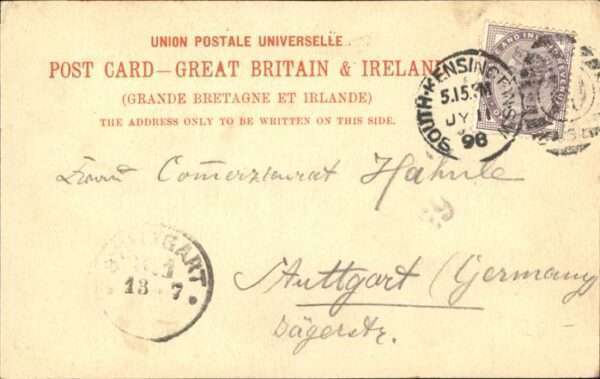 UNION POSTALE UNIVERSELLE.
POST CARD — GREAT BRITAIN & IRELAN
(GRANDE BRETAGNE ET IRLANDE)
THE ADDRESS ONLY TO BE WRITTEN ON THIS SIDE.
SOUTH-KENSINGTON S.W.
5.15 PM
JY 11
98
Comerzienrat Hähnle
Stuttgart (Germany)
Jägerstr.
STUTTGART
13 7